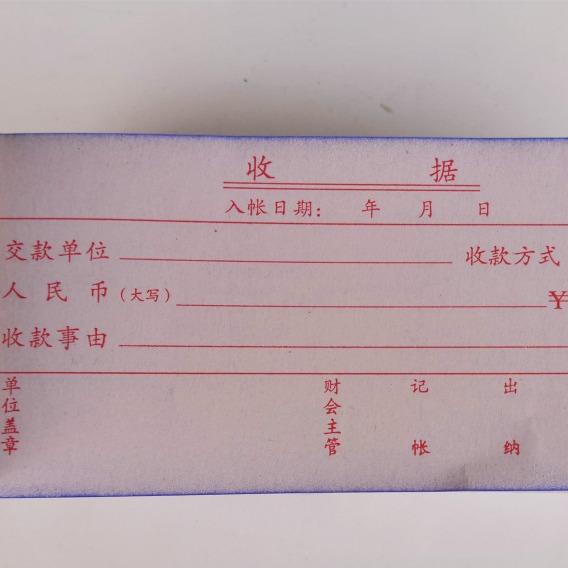 收 据
入帐日期： 年 月 日
交款单位 收款方式
人民币（大写） ¥
收款事由
单位盖章 财会主管 记帐 出纳